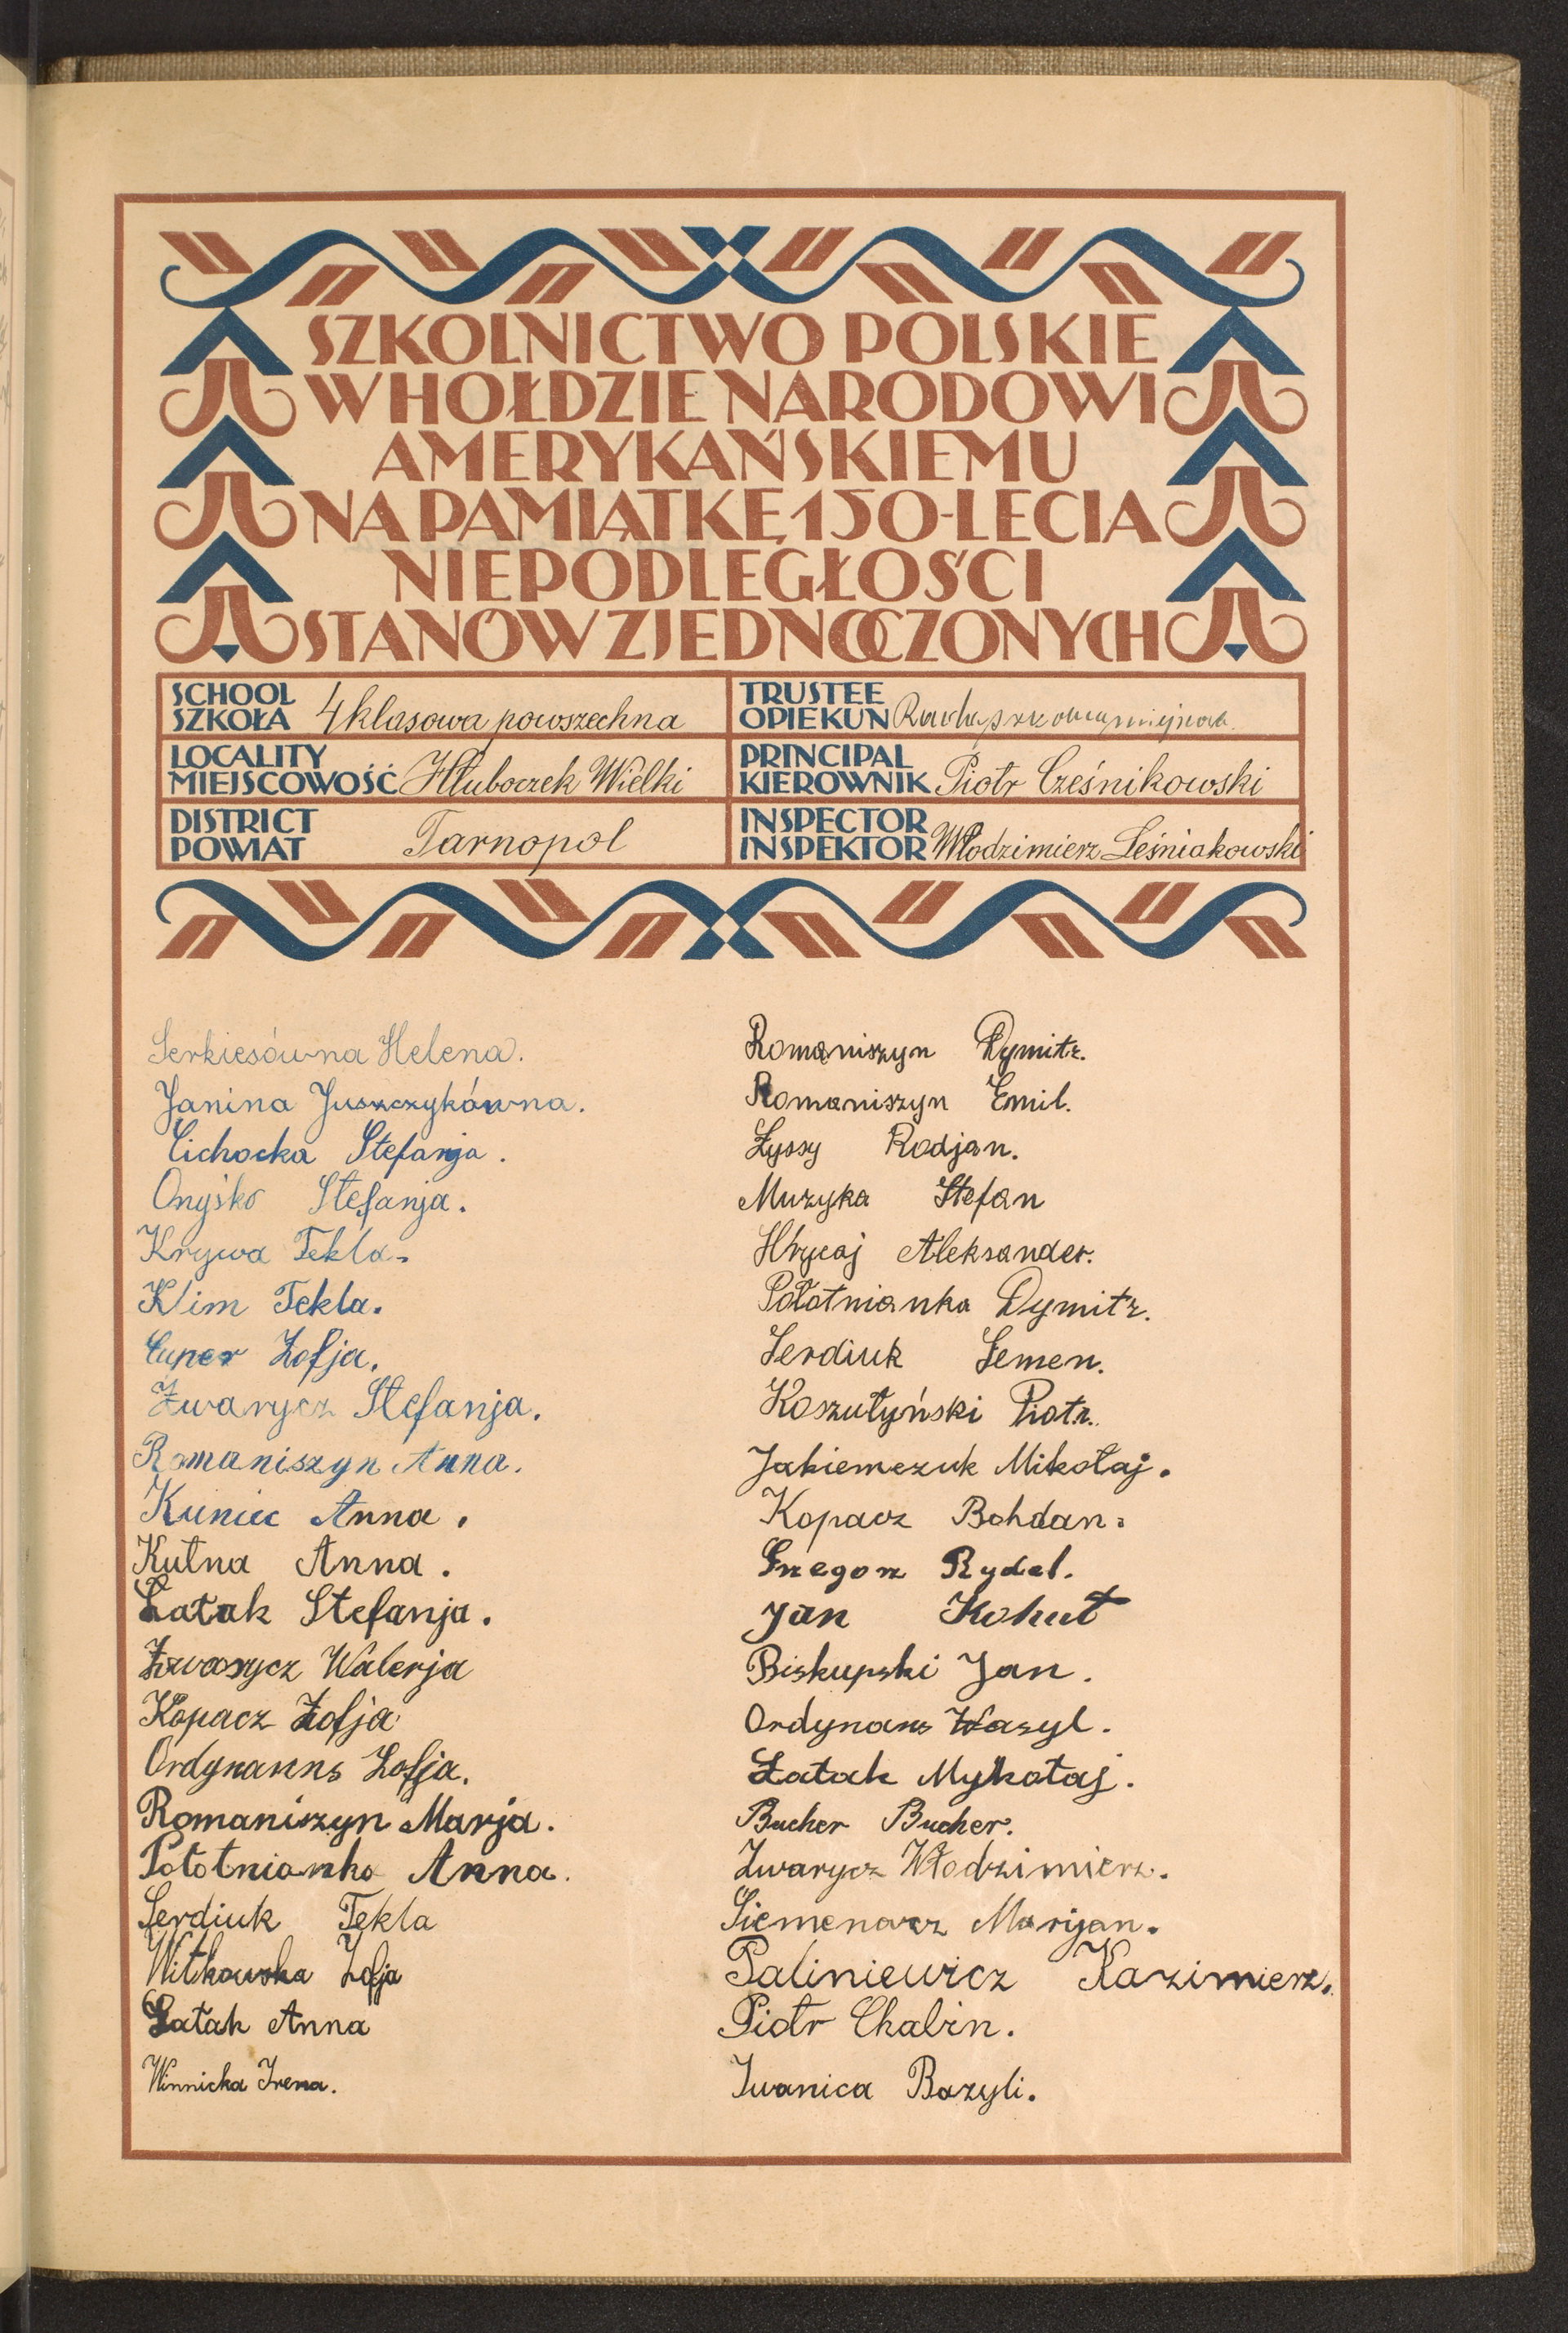 SZKOLNICTWO POLSKIE
W HOŁDZIE NARODOWI
AMERYKAŃSKIEMU
NA PAMIĄTKĘ 150-LECIA
NIEPODLEGŁOŚCI
STANÓW ZJEDNOCZONYCH
SCHOOL
SZKOŁA 4 klasowa powszechna
LOCALITY
MIEJSCOWOŚĆ Hłuboczek Wielki
DISTRICT
POWIAT Tarnopol
TRUSTEE
OPIEKUN Rada
PRINCIPAL
KIEROWNIK Piotr Cześnikowski
INSPECTOR
INSPEKTOR Włodzimierz Leśniakowski
Serkiesówna Helena.
Janina Juszczykówna.
Cichocka Stefanja.
Onyśko Stefanja.
Krywa Tekla.
Klim Tekla.
Cuper Zofja.
Zwarycz Stefanja.
Romaniszyn Anna.
Kuniec Anna.
Kutna Anna.
Łatak Stefanja.
Zwarycz Walerja
Kopacz Zofja
Ordynanns Zofja.
Romaniszyn Marja.
Połotnianko Anna.
Serdiuk Tekla
Witkowska Zofja
Łatak Anna
Winnicka Irena.
Romaniszyn Dymitr.
Romaniszyn Emil.
Łyssy Rodjan.
Muzyka Stefan
Hrycaj Aleksander.
Połotnianka Dymitr.
Serdiuk Semen.
Koszutyński Piotr.
Jakiemczuk Mikołaj.
Kopacz Bohdan.
Grzegorz Rydel.
Jan Kohut
Biskupski Jan.
Ordynans Wasyl.
Łatak Mykołaj.
Bucher Bucher.
Zwarycz Włodzimierz.
Siemenowcz Marijan.
Paliniewicz Kazimierz.
Piotr Chabin.
Iwanica Bazyli.